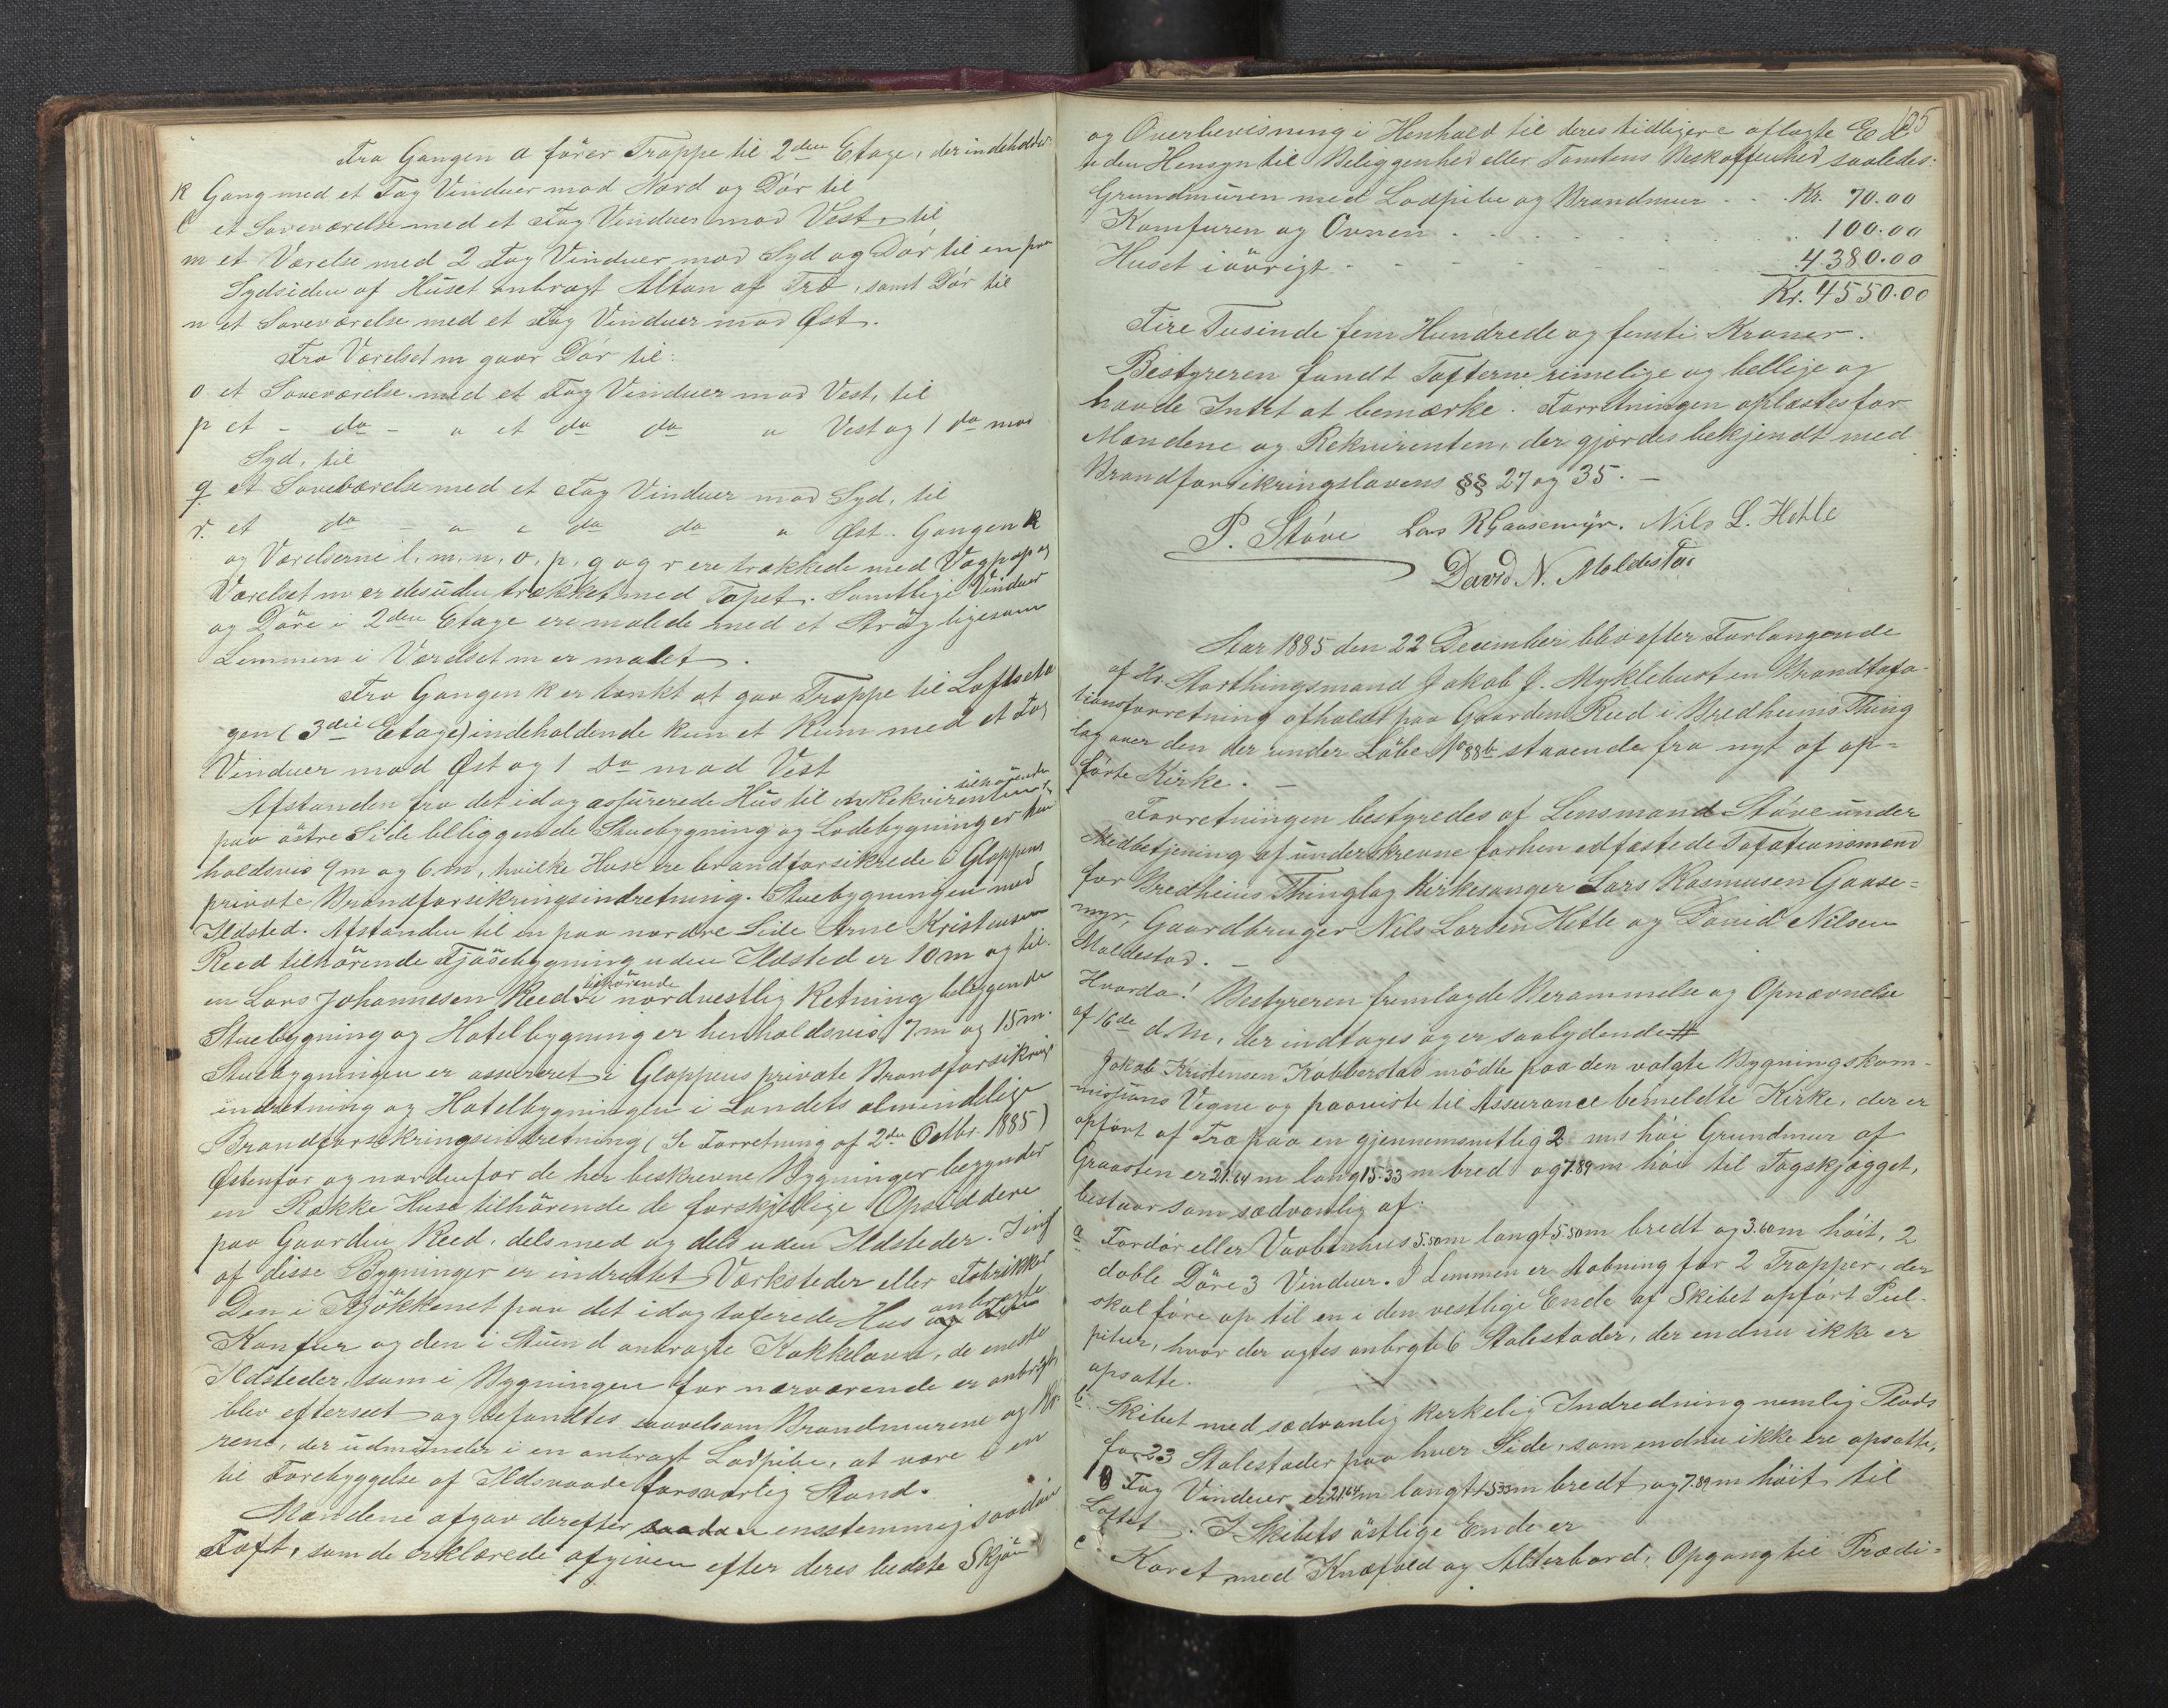 Fra Gangen a fører Trappe til 2den Etage, der indeholder
k Gang med et Fag Vinduer mod Nord og Dør til
l et Soveværelse med et Fag Vinduer mod Vest, til
m et Værelse med 2 Fag Vinduer mod Syd og Dør til en paa
Sydsiden af Huset anbragt Altan af Træ, samt Dør til
n et Soveværelse med et Fag Vinduer mod Øst.
Fra Værelset m gaar Dør til:
o et Soveværelse med et Fag Vinduer mod Vest, til
p et - do - " et do do " Vest og 1 do mod
Syd, til
q et Soveværelse med et Fag Vinduer mod Syd, til
r. et do - " " do do " Øst. Gangen k
og Værelserne l, m, n, o, p, q og r ere trækkede med Vagpap og
Værelset m er desuden trækket med Tapet. Samtlige Vinduer
og Døre i 2den Etage ere malede med et Strøg ligesom
Lemmen i Værelset m er malet.
Fra Gangen k er tænkt at gaa Trappe til Loftseta
gen (3die Etage) indeholdende kun et Rum med et Fag
Vinduer mod Øst og 1 do mod Vest
Afstanden fra det idag assurerede Hus til en Rekvirenten tilhørende
paa østre Side beliggende Stuebygning og Ladebygning er hen
holdsvis 9 m og 6 m, hvilke Huse ere brandforsikrede i Gloppens
private Brandforsikringsindretning. Stuebygningen med
Ildsted. Afstanden til en paa nordre Side Arne Kristensen
Reed tilhørende Fjøsebygning uden Ildsted er 10 m og til
en Lars Johannesen Reed tilhørende i nordvestlig Retning beliggende
Stuebygning og Hotelbygning er henholdsvis 7 m og 15 m.
Stuebygningen er assureret i Gloppens private Brandforsikrings
indretning og Hotelbygningen i Landets almindelige
Brandforsikringsindretning (Se Forretning af 2den Octbr. 1885)
Østenfor og nordenfor de her beskrevne Bygninger begynder
en Række Huse tilhørende de forskjellige Opsiddere
paa Gaarden Reed, dels med og dels uden Ildsteder. I ingen
af disse Bygninger er indrettet Værksteder eller Fabrikker
Den i Kjøkkenet paa det idag taxerede Hus anbragte
Komfur og den i Stuen d anbragte Kakkelovn, de eneste
Ildsteder, som i Bygningen for nærværende er anbragte
blev efterseet og befandtes saavelsom Brandmurene og Rø
rene, der udmunder i en anbragt Lodpibe, at være i en
til Forebyggelse af Ildsvaade forsvarlig Stand.
Mændene afgav derefter eensstemmig saadan
Taxt, som de erklærede afgiven efter deres bedste Skjøn
185
og Overbevisning i Henhold til deres tidligere aflagte Ed
uden Hensyn til Beliggenhed eller Tomtens Beskaffenhed saaledes:
Grundmuren med Lodpibe og Brandmur . . Kr. 70.00
Komfuren og Ovnen . . . 100.00
Huset iøvrigt - - - 4380.00
Kr. 4550.00
Fire Tusinde fem Hundrede og femti Kroner.
Bestyreren fandt Taxterne rimelige og billige og
havde Intet at bemærke. Forretningen oplæstes for
Mændene og Rekvirenten, der gjordes bekjendt med
Brandforsikringslovens §§ 27 og 35. -
P. Støve Lars R Gaasemyr. Nils L. Hetle
David N. Moldestad
Aar 1885 den 22 December blev efter Forlangende
af Hr. Storthingsmand Jakob J. Myklebust en Brandtaxa-
tionsforretning afholdt paa Gaarden Reed i Bredheims Thing
lag over den der under Løbe No 88b staaende fra nyt af op=
førte Kirke. -
Forretningen bestyredes af Lensmand Støve under
Medbetjening af underskrevne forhen edfæstede Taxationsmænd
for Bredheims Thinglag Kirkesanger Lars Rasmusen Gaase=
myr, Gaardbruger Nils Larsen Hetle og David Nilsen
Moldestad. -
Hvorda! Bestyreren fremlagde Berammelse og Opnævnelse
af 16de d. M, der indtages og er saalydende #
Jakob Kristensen Kobberstad mødte paa den valgte Bygningskom-
misjons Vegne og paaviste til Assurance bemeldte Kirke, der er
opført af Træ paa en gjennemsnitlig 2 m høi Grundmur af
Graasten er 21.64 m lang 15.33 m bred og 7.89 m høi til Tagskjægget,
bestaar som sædvanlig af:
a Fordør eller Vaabenhus 5.50 m langt 5.50 m bredt og 3.60 m høit, 2
doble Døre 3 Vinduer. I Lemmen er Aabning for 2 Trapper, der
skal føre op til en i den vestlige Ende af Skibet opført Pul-
pitur, hvor der agtes anbragte 6 Stolestader, der endnu ikke er
opsatte.
b Skibet med sædvanlig kirkelig Indredning nemlig Plads
for 23 Stolestader paa hver Side, som endnu ikke ere opsatte,
10 Fag Vinduer er 21.64 m langt 15.33 m bredt og 7.89 m høit til
Loftet. I Skibets østlige Ende er
c Koret med Knæfald og Alterbord, Opgang til Prædi=